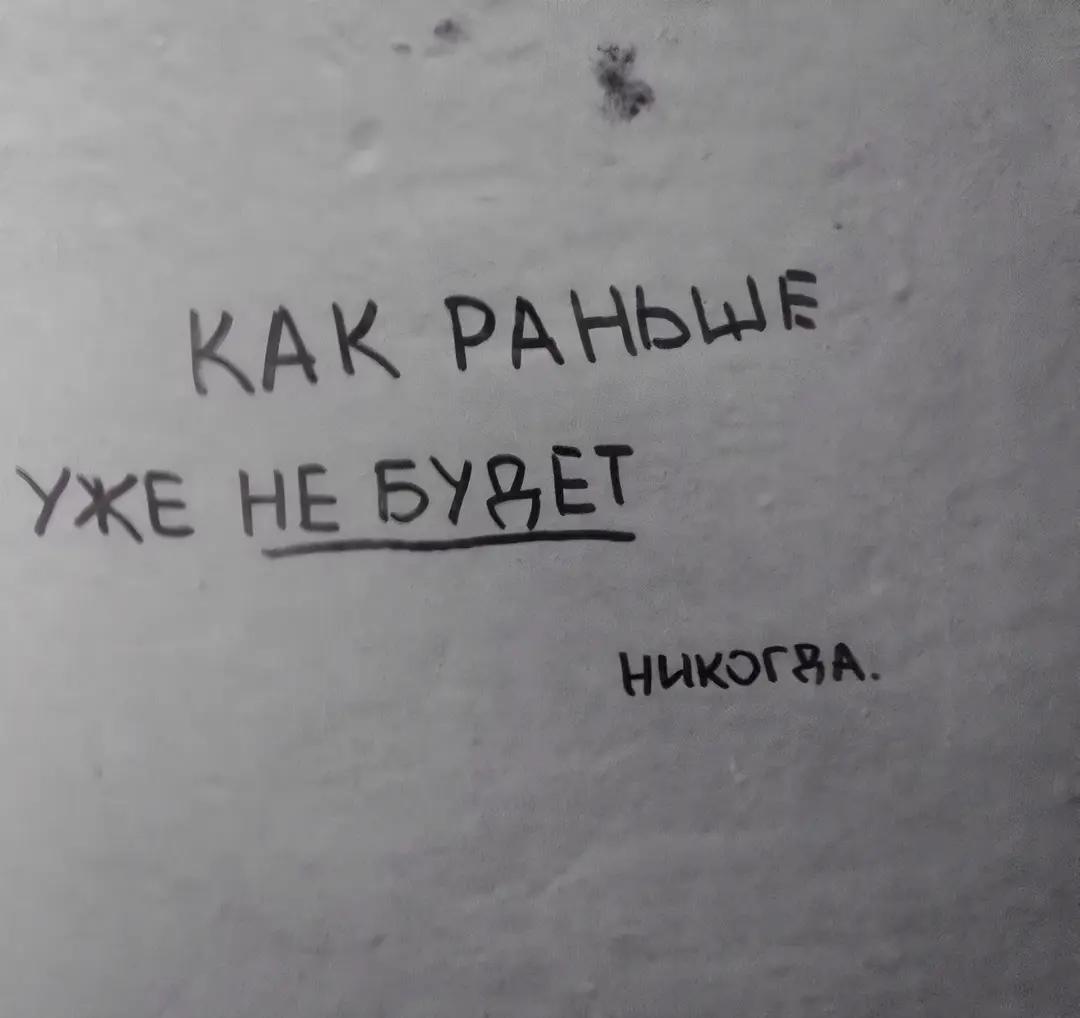 КАК РАНЬШЕ
УЖЕ НЕ БУДЕТ
НИКОГДА.